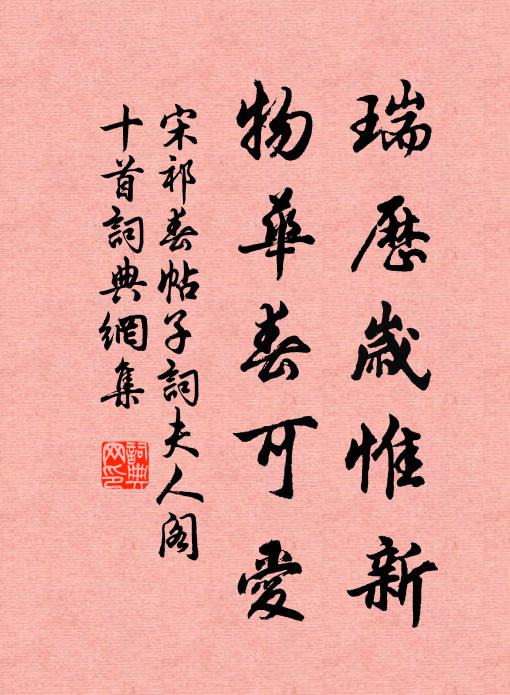 瑞歷歲惟新
物華春可愛
宋祁春帖子詞夫人閣
十首詞典網集
詞典網印